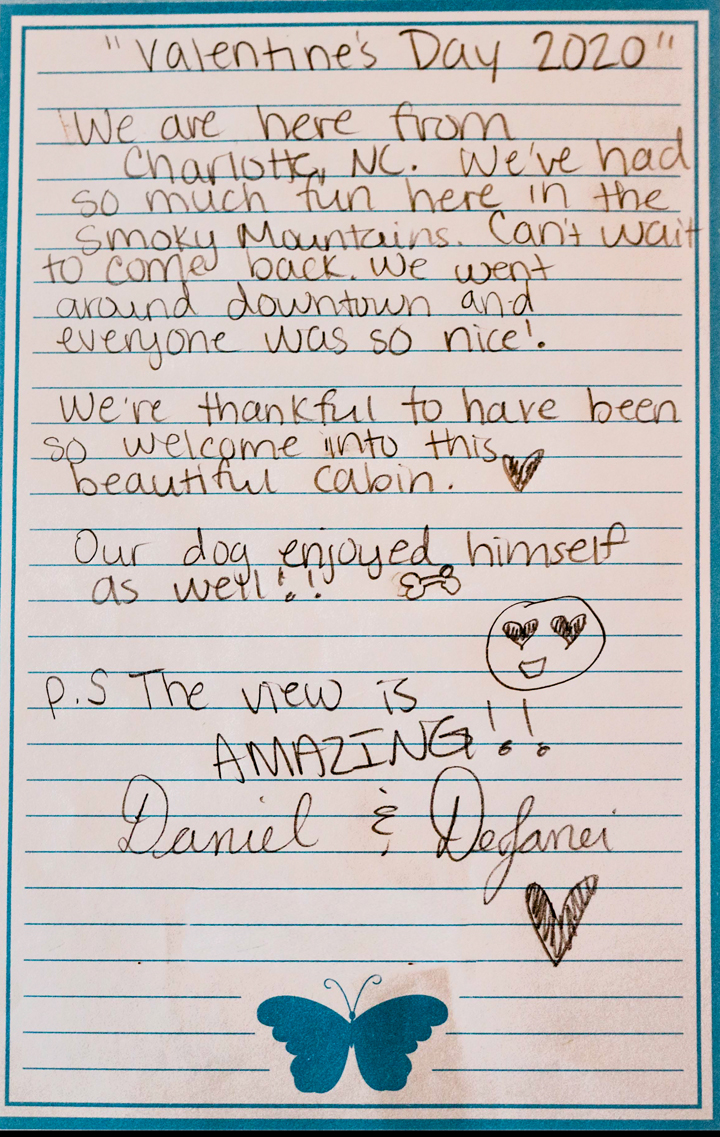 "Valentine's Day 2020"
We are here from
Charlotte, NC. We've had
so much fun here in the
Smoky Mountains. Can't wait
to come back. We went
around downtown and
everyone was so nice!
We're thankful to have been
so welcome into this
beautiful cabin.
Our dog enjoyed himself
as well!!
P.S The view is
AMAZING!!
Daniel &